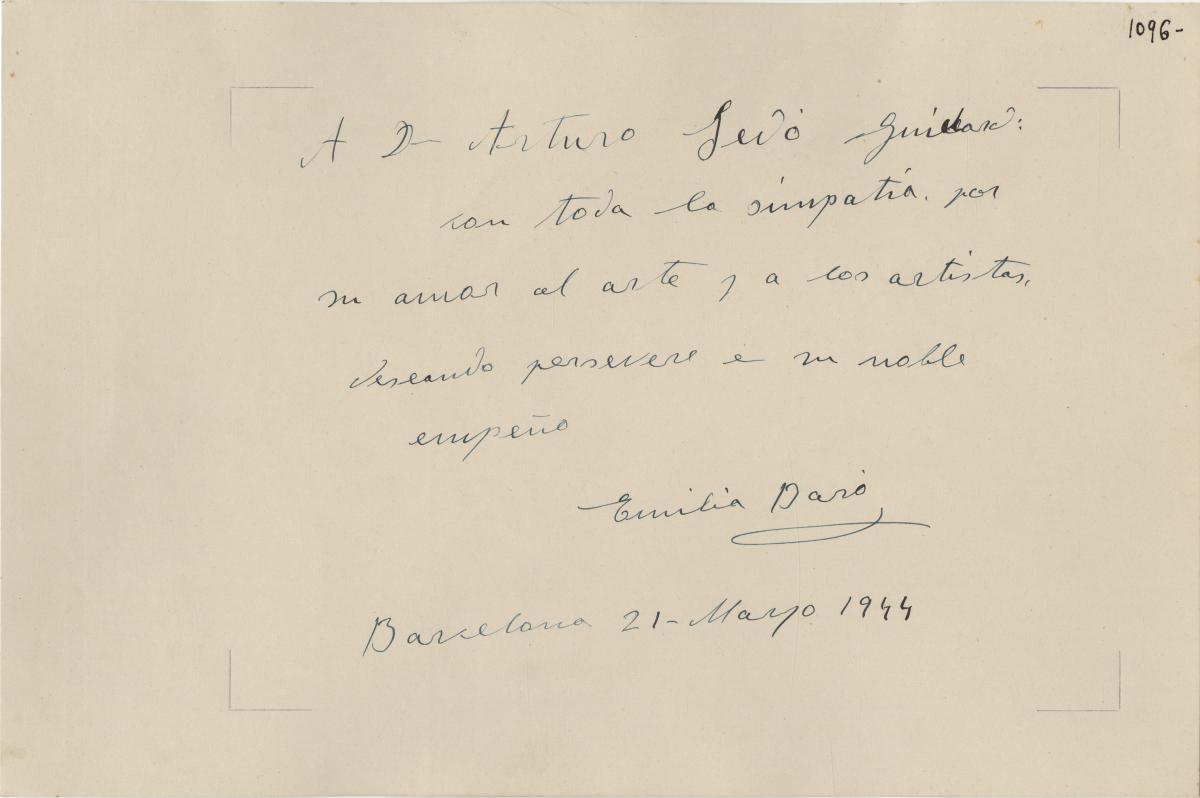 1096-
A Dn Arturo Sedó Guillard:
con toda la simpatía, por
su amor al arte y a los artistas,
deseando persevere en su noble
empeño
Emilia Baró
Barcelona 21-Mayo 1944